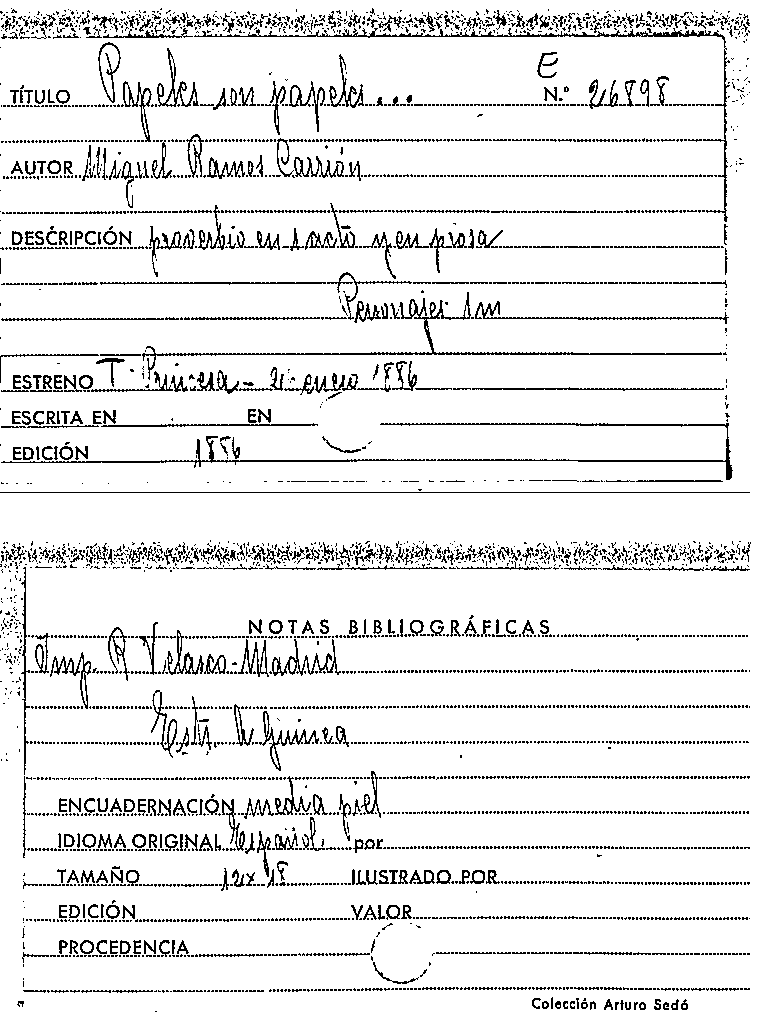 E
TÍTULO Papeles son papeles... N.º 26898
AUTOR Miguel Ramos Carrión
DESCRIPCIÓN proverbio en 1 acto y en prosa
Personajes 1m
ESTRENO T. Princesa - enero 1886
ESCRITA EN EN
EDICIÓN 1886
NOTAS BIBLIOGRÁFICAS
Imp. R Velasco - Madrid
Guinea
ENCUADERNACIÓN media piel
IDIOMA ORIGINAL Español por
TAMAÑO 12x18 ILUSTRADO POR
EDICIÓN VALOR
PROCEDENCIA
Colección Arturo Sedó